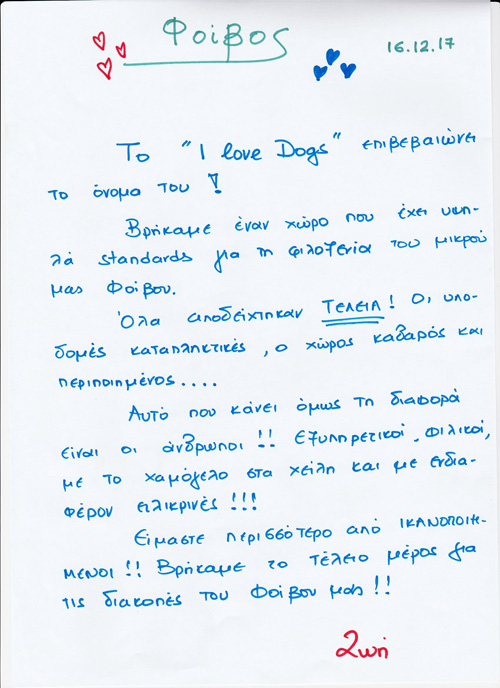 Φοίβος
16.12.17
Το "I love Dogs" επιβεβαιώνει
το όνομα του !
Βρήκαμε έναν χώρο που έχει υψη-
λά standards για τη φιλοξενία του μικρού
μας Φοίβου.
Όλα αποδείχτηκαν ΤΕΛΕΙΑ! Οι υπο-
δομές καταπληκτικές, ο χώρος καθαρός και
περιποιημένος....
Αυτό που κάνει όμως τη διαφορά
είναι οι άνθρωποι!! Εξυπηρετικοί, φιλικοί,
με το χαμόγελο στα χείλη και με ενδια-
φέρον ειλικρινές!!!
Είμαστε περισσότερο από ΙΚΑΝΟΠΟΙΗ-
ΜΕΝΟΙ!! Βρήκαμε το τέλειο μέρος για
τις διακοπές του Φοίβου μας!!
Ζωή